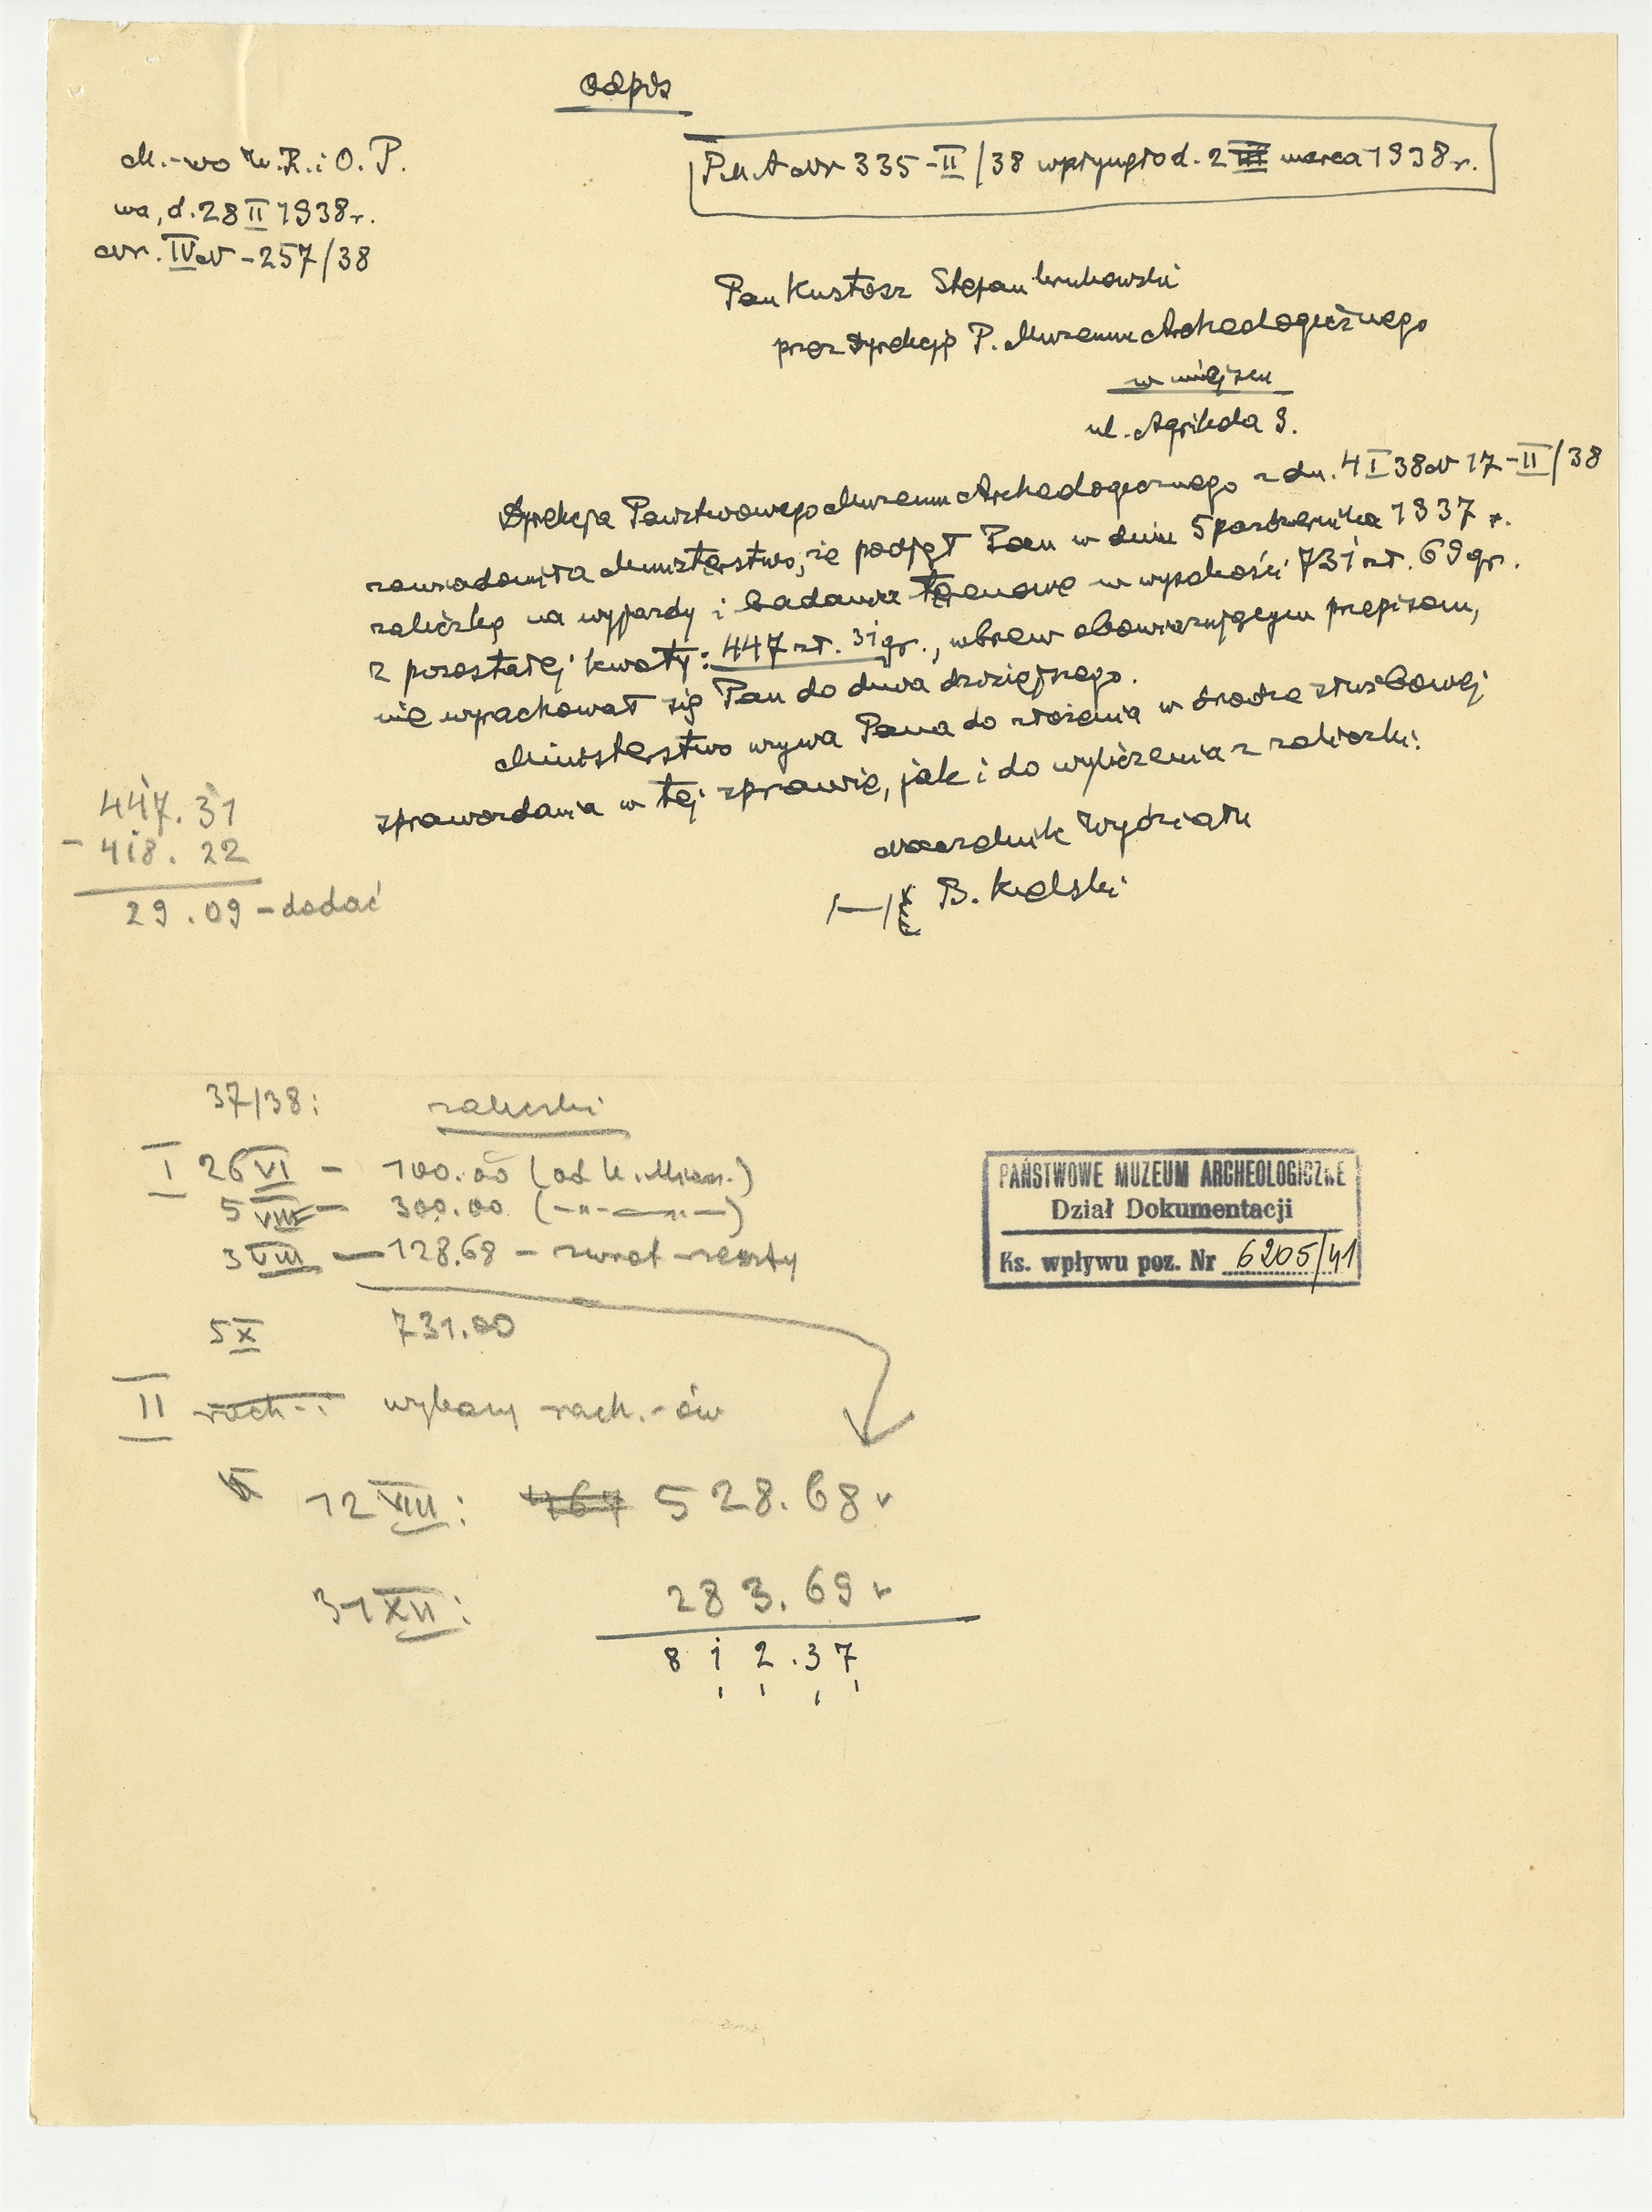 odpis
M.-wo W.R. i O.P.
wa, d. 28 II 1938 r.
Nr. IV N - 257/38
P.M.A Nr 335-II/38 wpłynęło d. 2 marca 1938 r.
Pan Kustosz Stefan Krukowski
przez Dyrekcję P. Muzeum Archeologicznego
w miejscu
ul. Agrikola 9.
Dyrekcja Państwowego Muzeum Archeologicznego z dn. 4 I 38 N 17-II/38
zawiadomiła Ministerstwo, że podjął Pan w dniu 5 października 1937 r.
zaliczkę na wyjazdy i badania terenowe w wysokości 731 zł. 69 gr.
z pozostałej kwoty: 447 zł. 31 gr., wbrew obowiązującym przepisom,
nie wyrachował się Pan do dnia dzisiejszego.
Ministerstwo wzywa Pana do złożenia w drodze służbowej
sprawozdania w tej sprawie, jak i do wyliczenia z zaliczki.
Naczelnik Wydziału
/—/ B. Kielski
447.31
- 418.22
29.09 - dodać
37/38: zaliczki
I 26 VI - 100.00 (od K. Mian.)
5 VIII - 300.00 (-"- -"-)
3 VIII - 128.68 - zwrot reszty
5 X 731.00
II rach-i wykazy rach.-ów
12 VIII: 464 528.68 v
31 XII: 283.69 v
812.37
PAŃSTWOWE MUZEUM ARCHEOLOGICZNE
Dział Dokumentacji
Ks. wpływu poz. Nr 6205/41